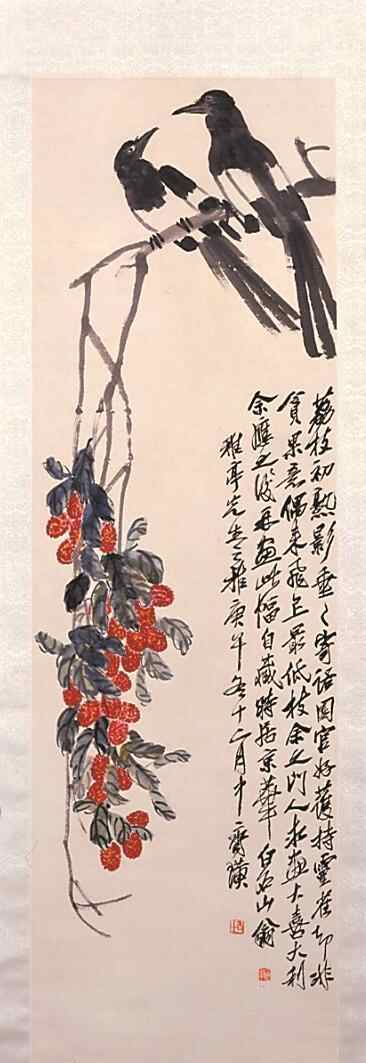 荔枝初熟影垂〻寄語園官好護持靈雀却非
貪果意偶來飛上最低枝余之門人求畫大喜大利
余應之後再畫此幅自藏時居京華白石山翁
雅亭先生雅庚午冬十二月中齊璜